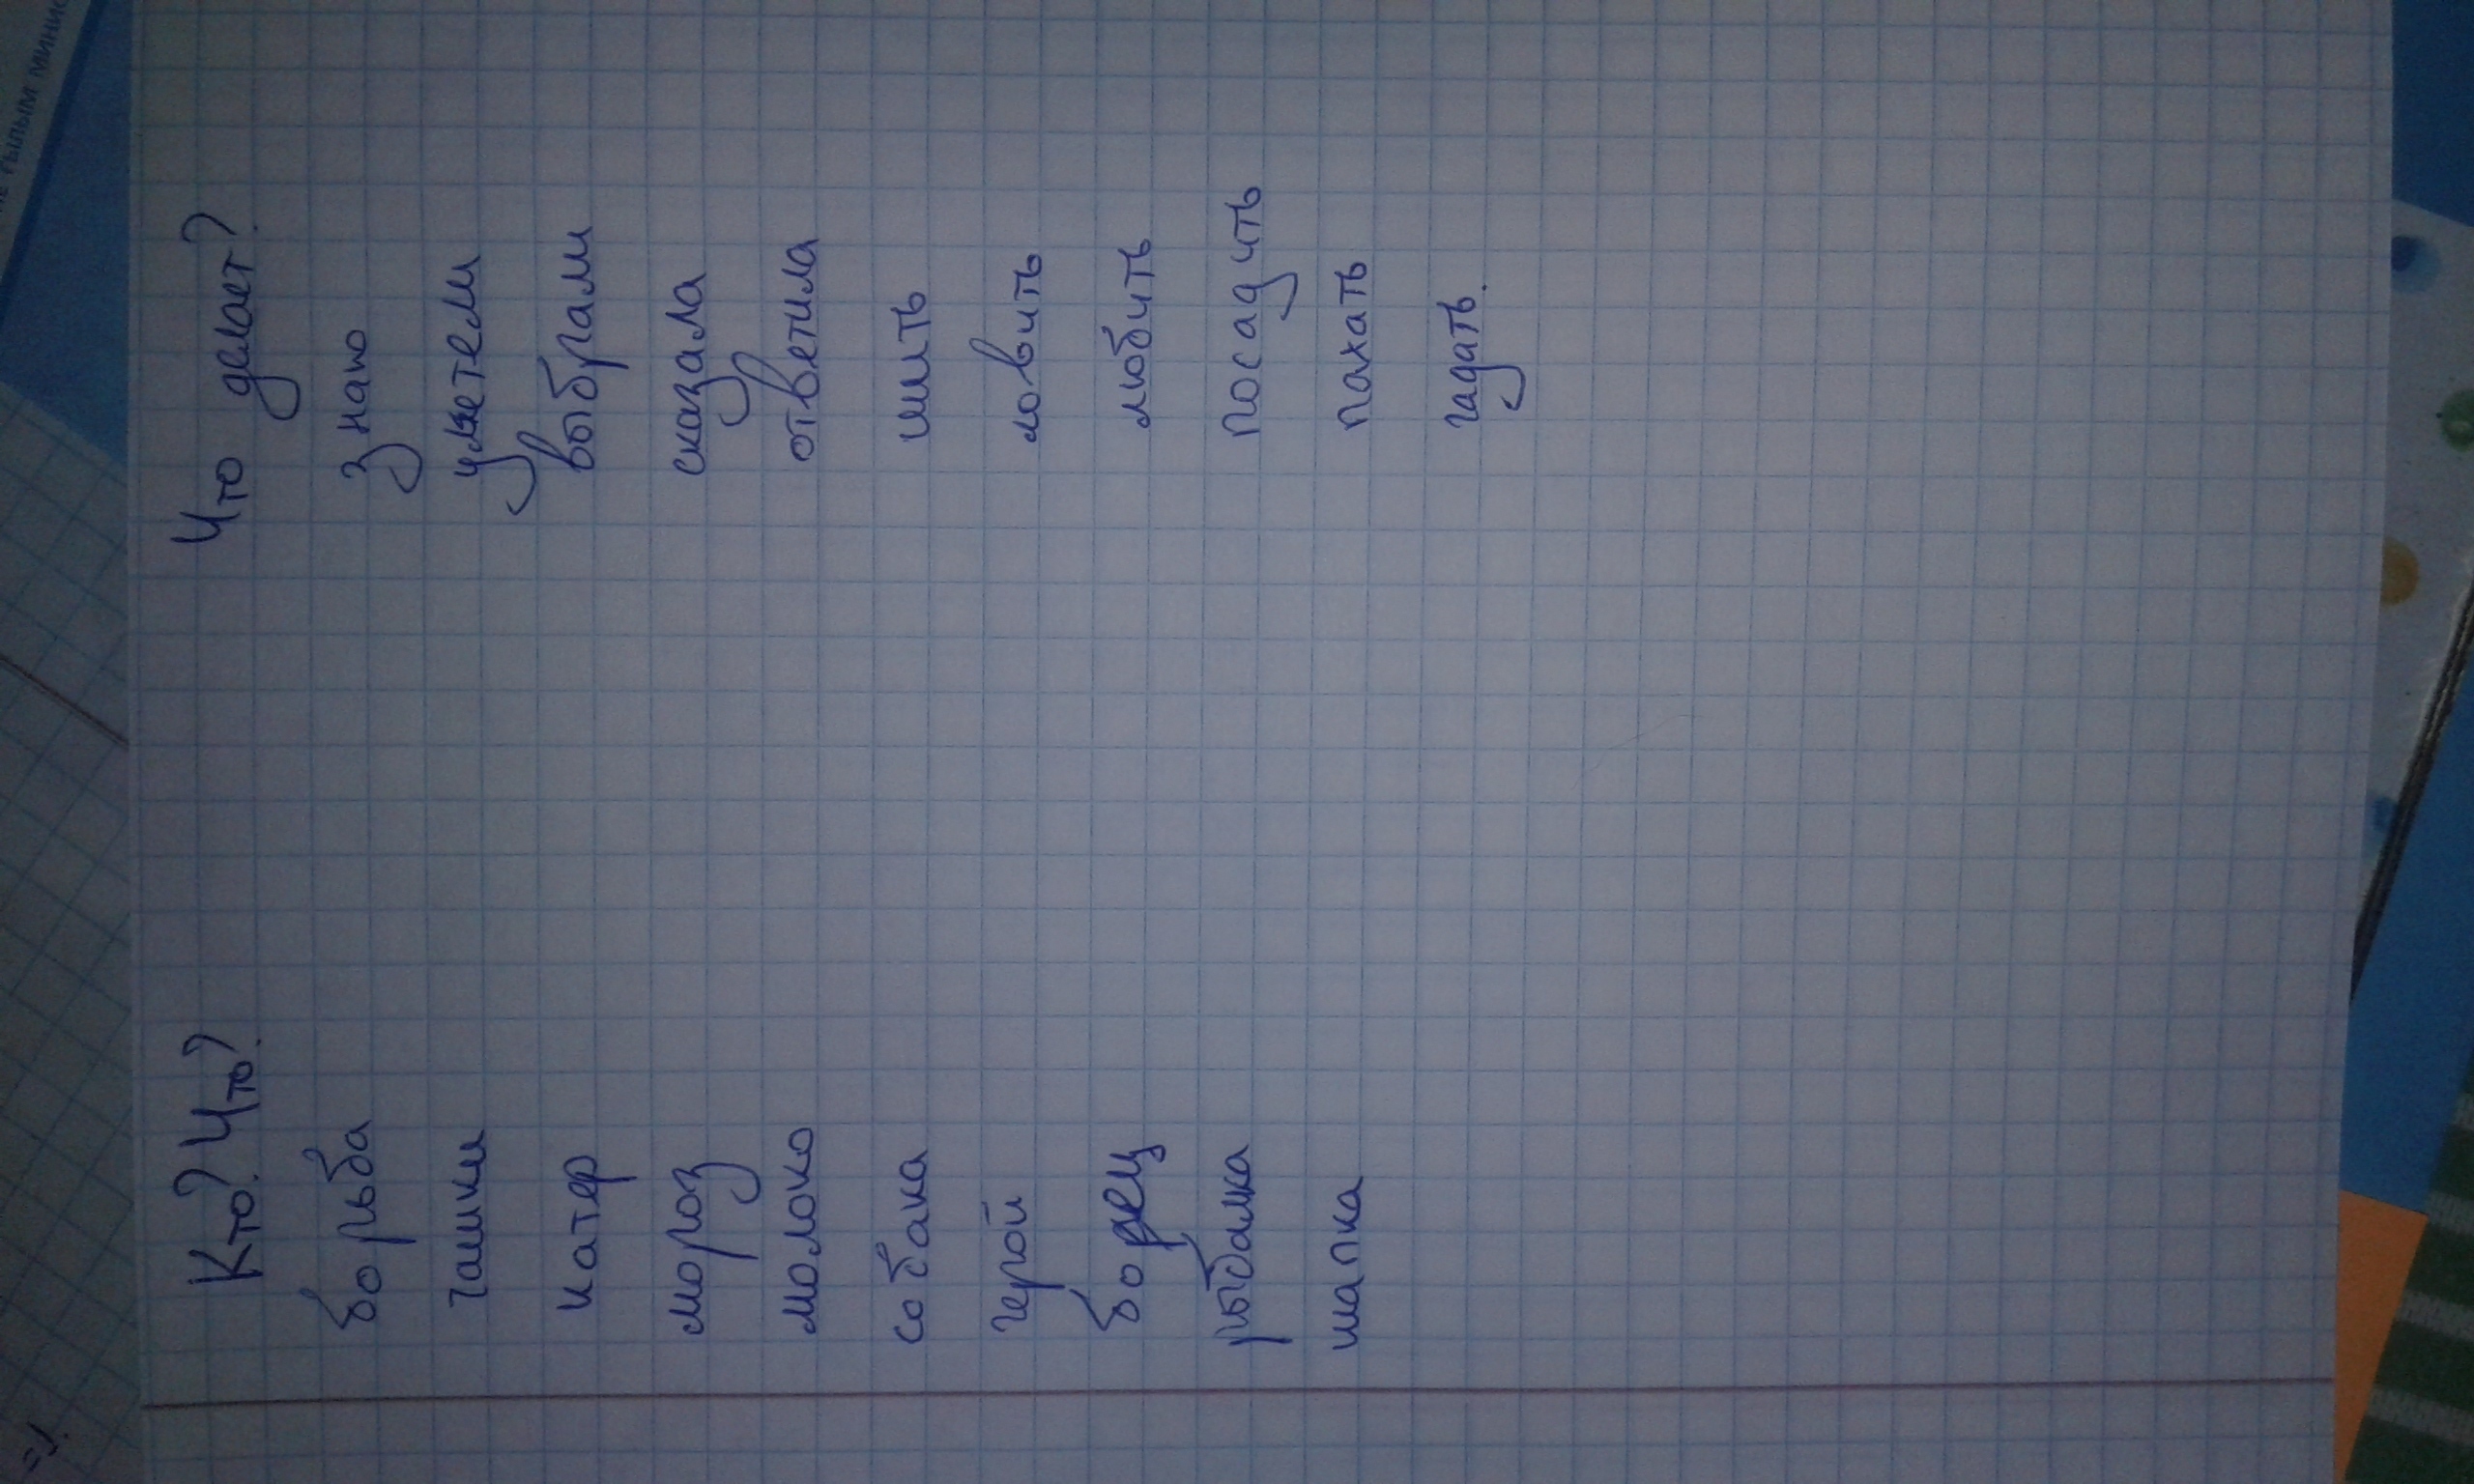 Кто? Что? Что делает?
борьба знаю
чашки улетели
катер выбрали
мороз сказала
молоко ответила
собака шить
герой ловить
борец любить
рыбалка посадить
шапка пахать
гадать.